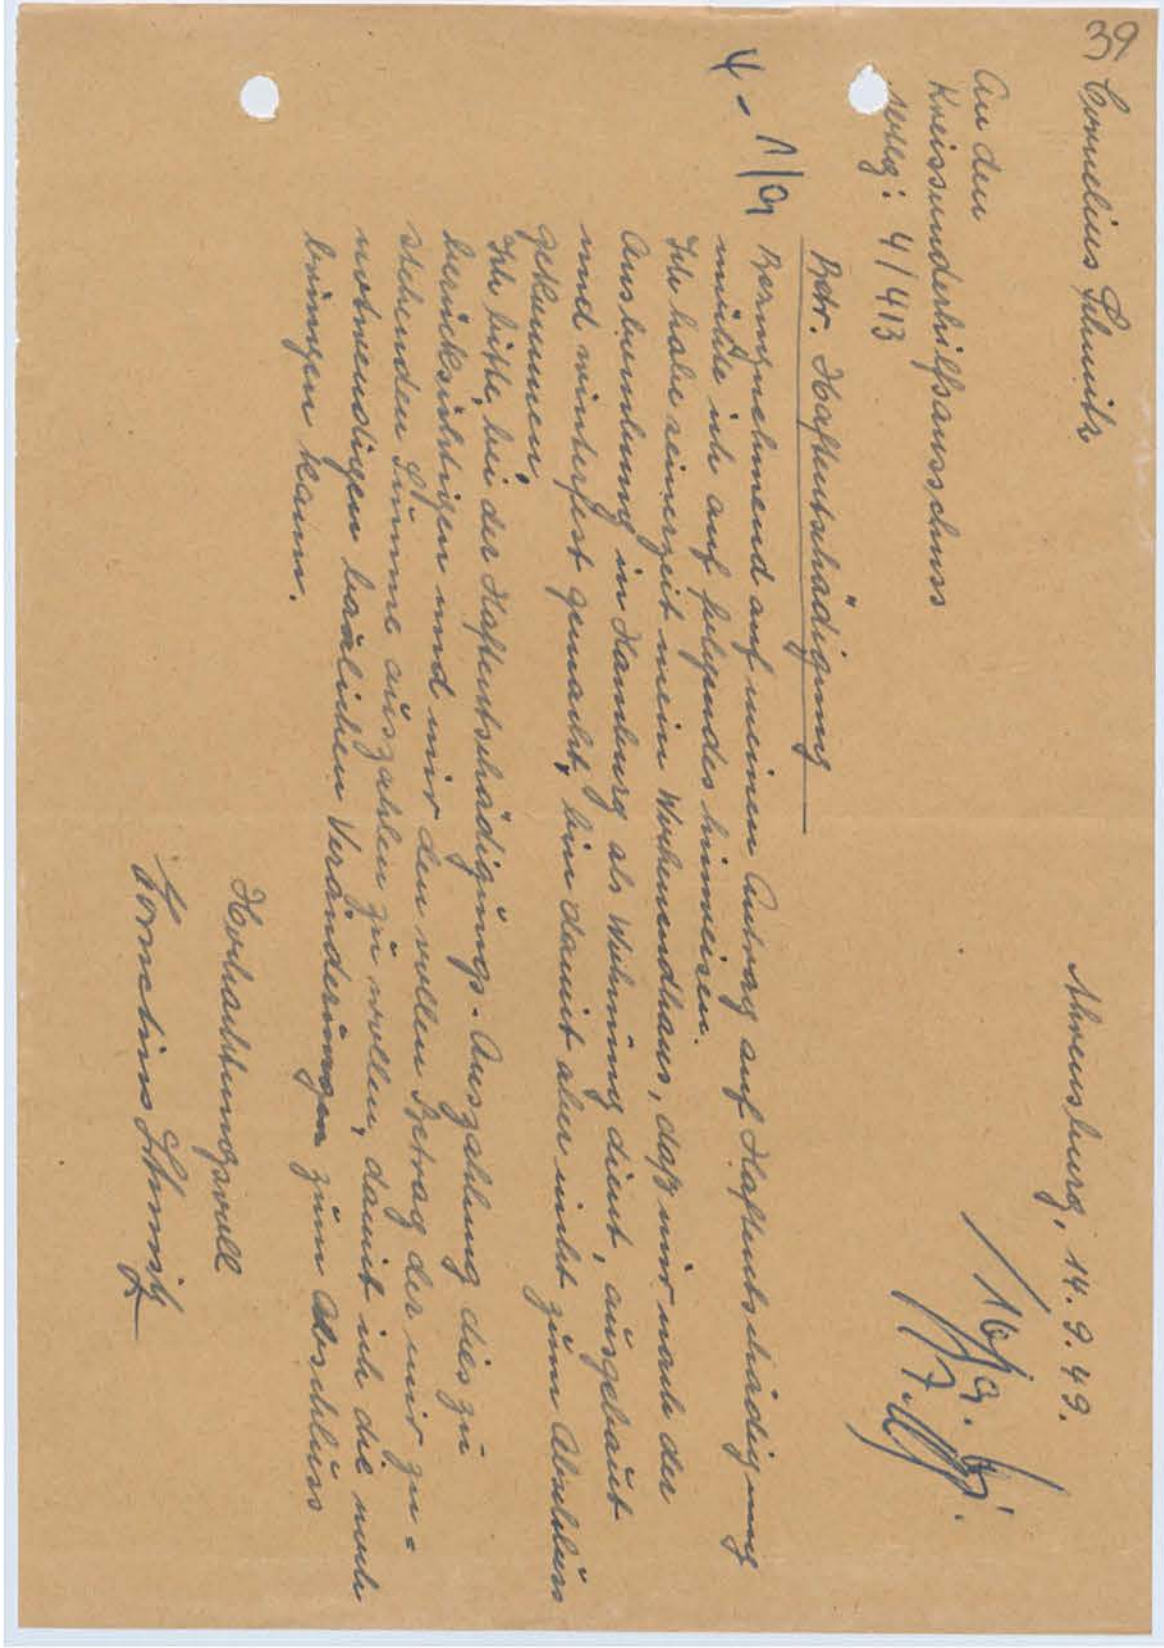 39
Cornelius Schmitz
Ahrensburg, 14. 9. 49.
An den
Kreissonderhilfsausschuss
4/413
Betr. Haftentschädigung
4 - 1/9
Bezugnehmend auf meinen Antrag auf Haftentschädigung
möchte ich auf folgendes hinweisen.
Ich habe seinerzeit mein Wochenendhaus, daß mir nach der
Ausbombung in Hamburg als Wohnung dient, ausgebaut
und winterfest gemacht, bin damit aber nicht zum Abschluss
gekommen.
Ich bitte, bei der Haftentschädigungs-Auszahlung dies zu
berücksichtigen und mir den vollen Betrag der mir zu=
stehenden Summe auszahlen zu wollen, damit ich die noch
notwendigen baulichen Veränderungen zum Abschluss
bringen kann.
Hochachtungsvoll
Kornelius Schmitz